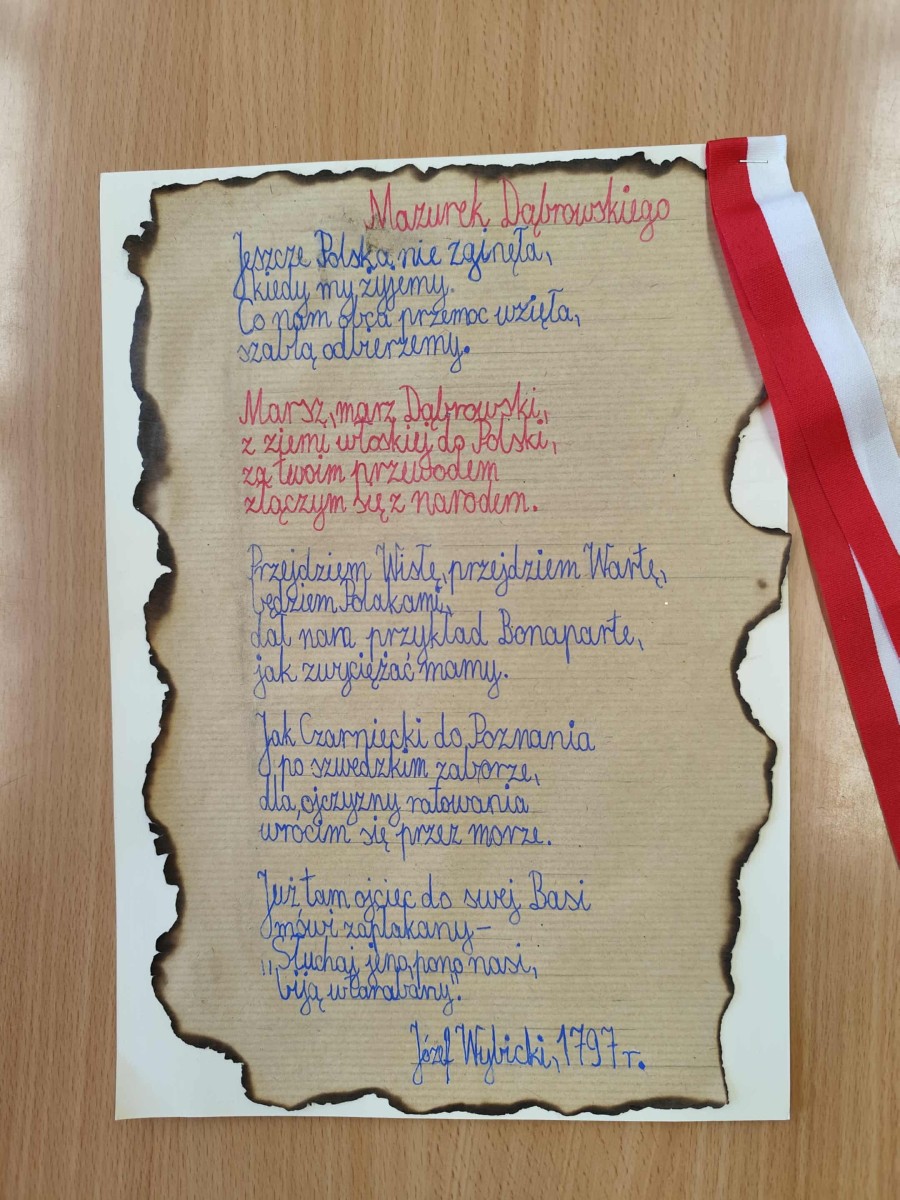 Mazurek Dąbrowskiego
Jeszcze Polska nie zginęła,
kiedy my żyjemy.
Co nam obca przemoc wzięła,
szablą odbierzemy.
Marsz, marz Dąbrowski,
z ziemi włoskiej do Polski,
za twoim przewodem
złączym się z narodem.
Przejdziem Wisłę, przejdziem Wartę,
będziem Polakami,
dał nam przykład Bonaparte,
jak zwyciężać mamy.
Jak Czarniecki do Poznania
po szwedzkim zaborze,
dla ojczyzny ratowania
wrócim się przez morze.
Już tam ojciec do swej Basi
mówi zapłakany –
„Słuchaj jeno, pono nasi,
biją w tarabany".
Józef Wybicki, 1797 r.